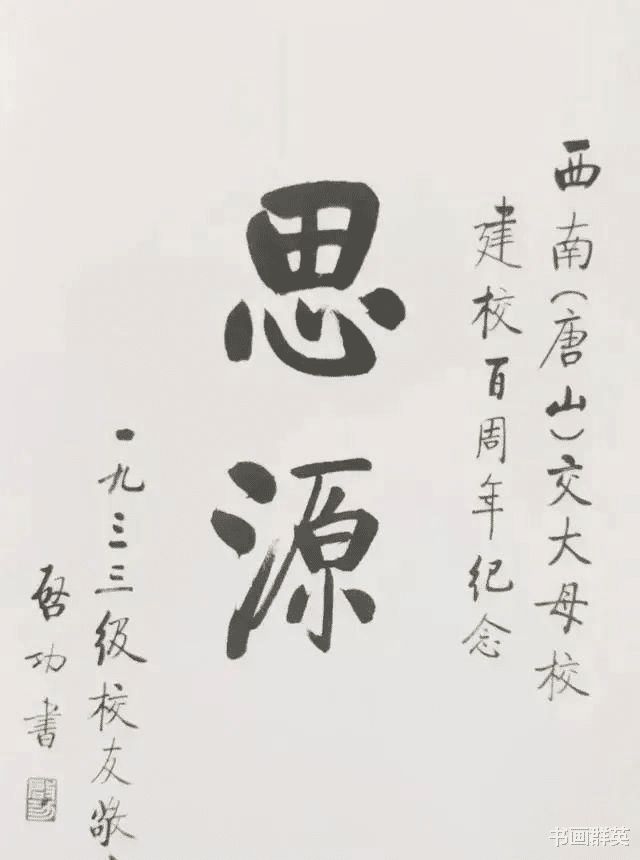 西南(唐山)交大母校
建校百周年纪念
思源
一九三三级校友敬
启功书
书画群英